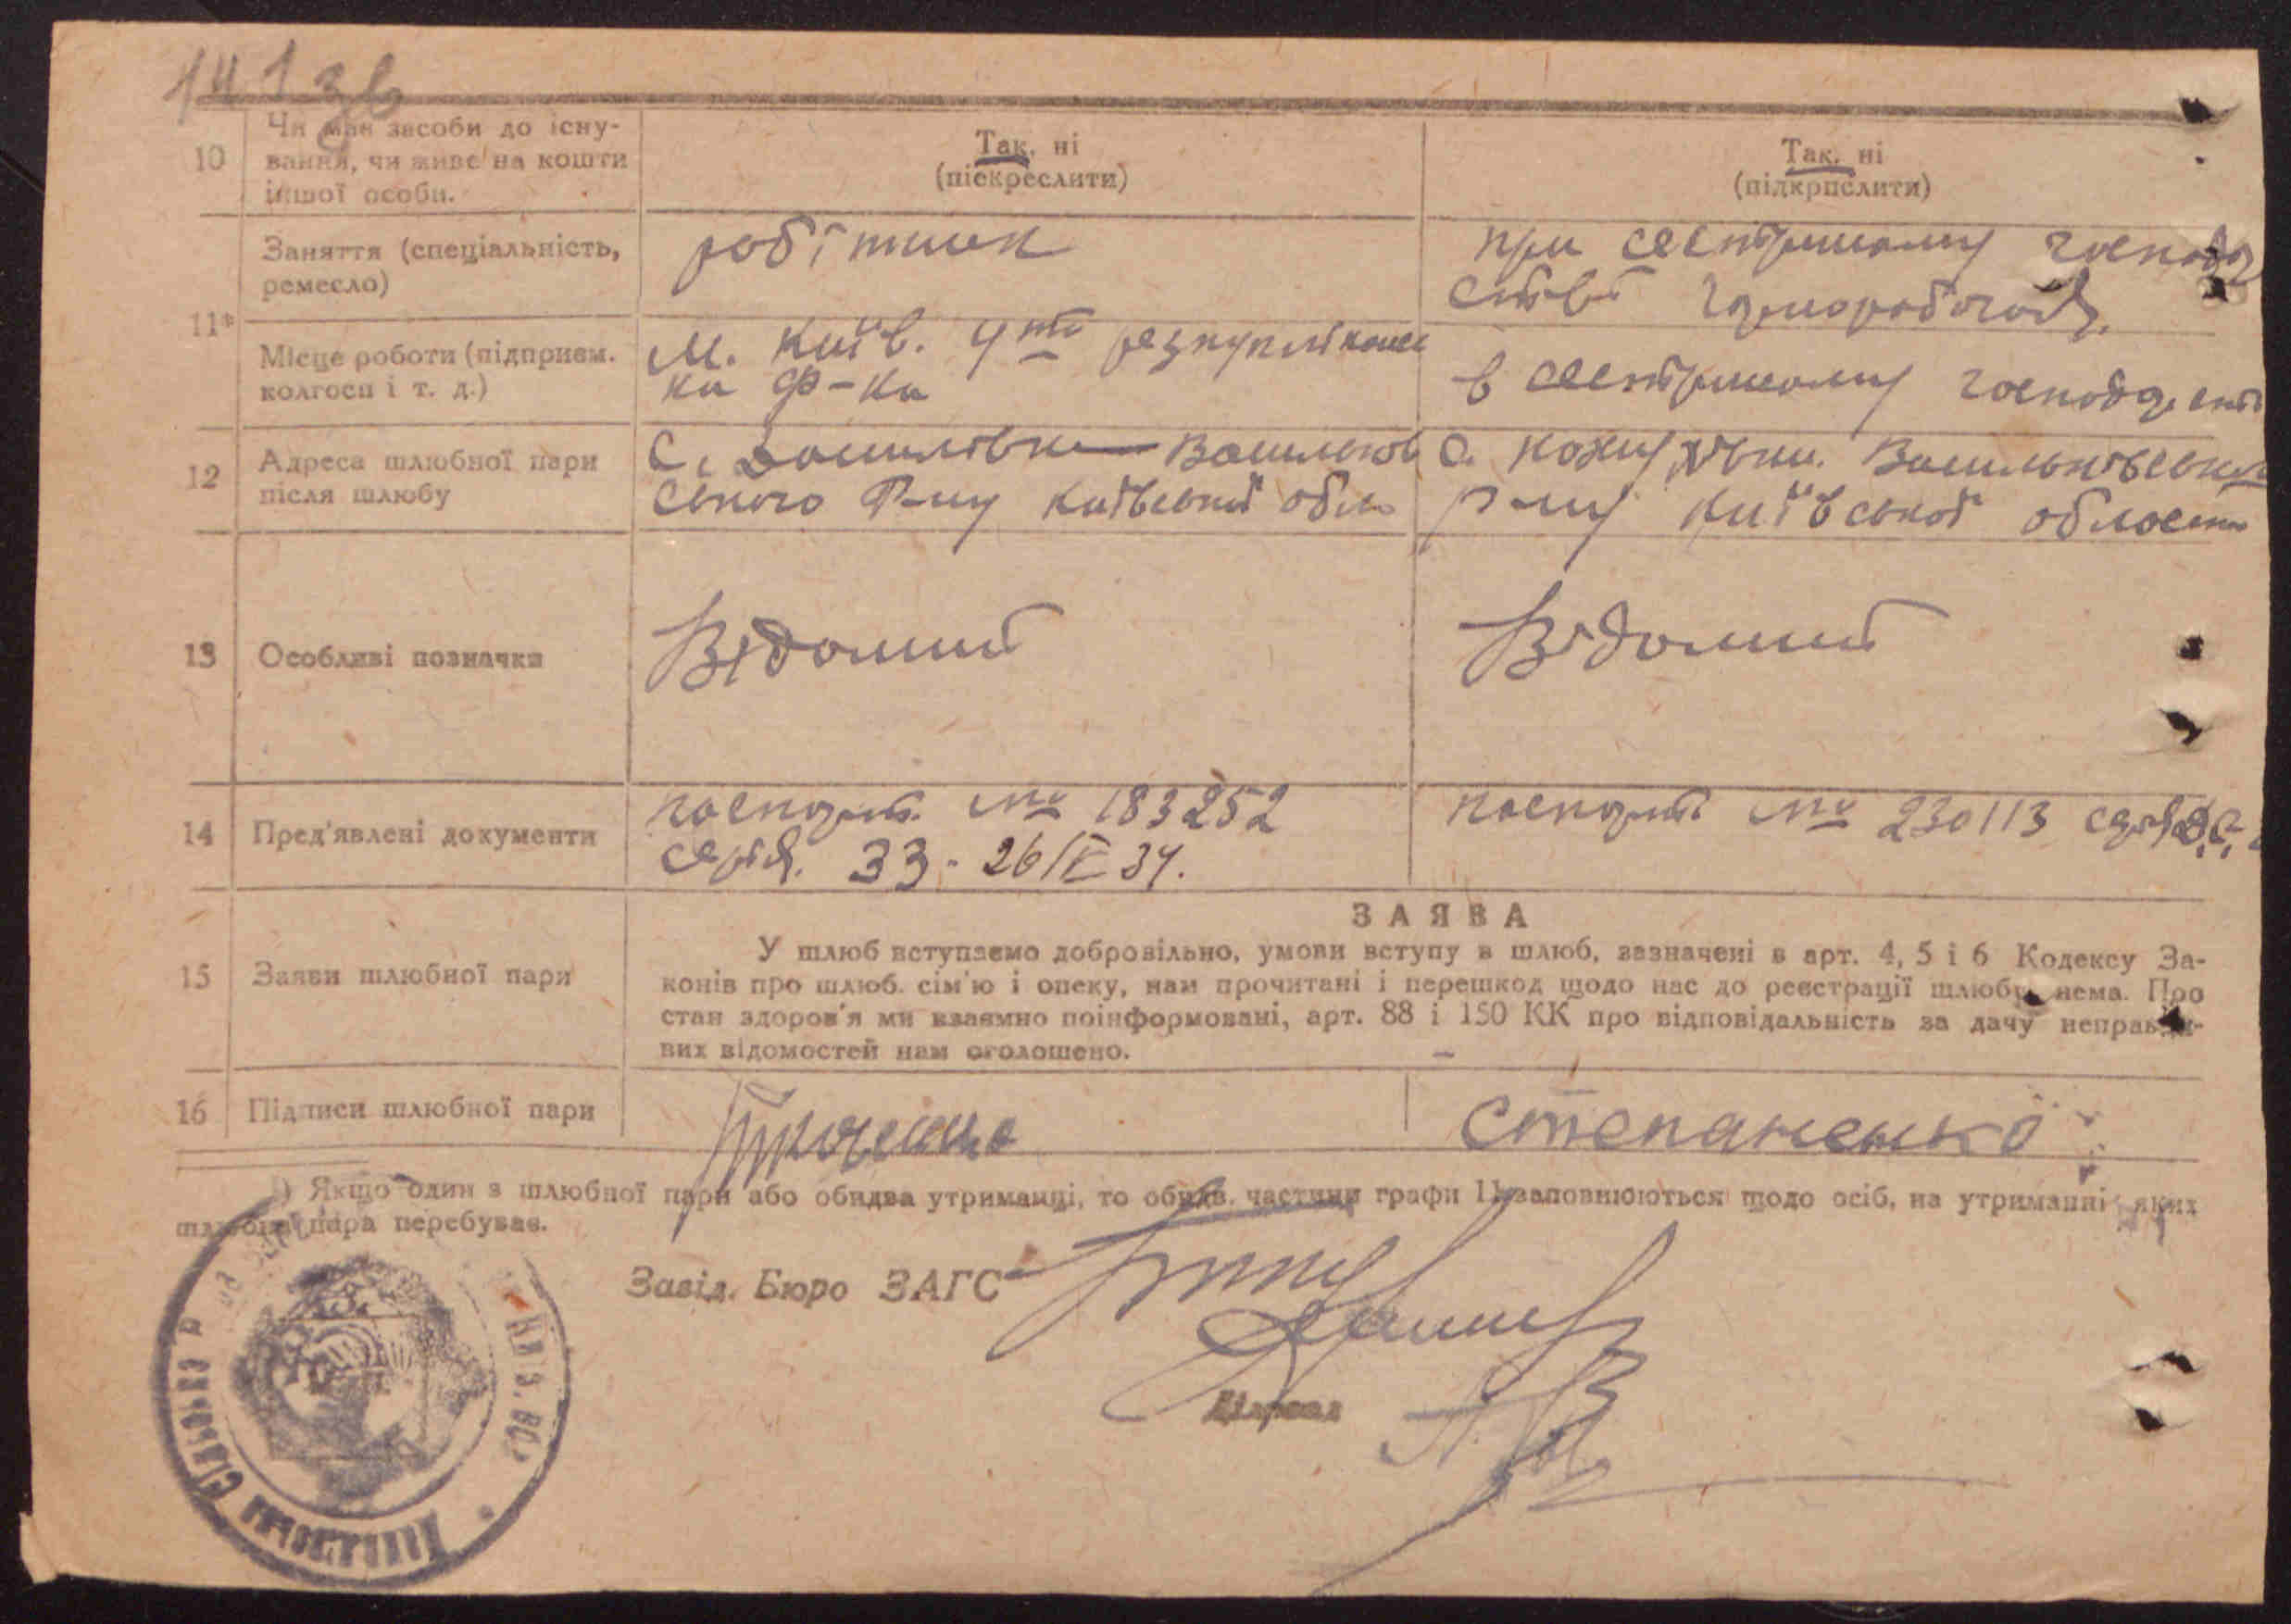 141 зв
10
Чи має засоби до існу-
вання, чи живе на кошти
іншої особи.
Так, ні
(піскреслити)
Так, ні
(підкрпслити)
11*
Заняття (спеціальність,
ремесло)
робітник
при сестриному господар
стві
Місце роботи (підприєм.
колгосп і т. д.)
М. Київ. 4та
ка ф-ка
в сестриному господарстві
12
Адреса шлюбної пари
після шлюбу
С. Васильков
ського Р-ну Київської обл
С. Васильківського
р-ну Київської області
13
Особливі позначки
Відомий
Відомий
14
Пред'явлені документи
паспорт № 183252
серія. 33. 26/V 34.
паспорт № 230113 серія
15
Заяви шлюбної пари
ЗАЯВА
У шлюб вступаємо добровільно, умови вступу в шлюб, зазначені в арт. 4, 5 і 6 Кодексу За-
конів про шлюб. сім'ю і опеку, нам прочитані і перешкод щодо нас до реєстрації шлюбу нема. Про
стан здоров'я ми взаємно поінформовані, арт. 88 і 150 КК про відповідальність за дачу неправди-
вих відомостей нам оголошено.
16
Підписи шлюбної пари
Степаненко
1) Якщо один з шлюбної пари або обидва утриманці, то обидв. частини графи 11 заповнюються щодо осіб, на утриманні яких
шлюбна пара перебуває.
Завід. Бюро ЗАГС
Діловод